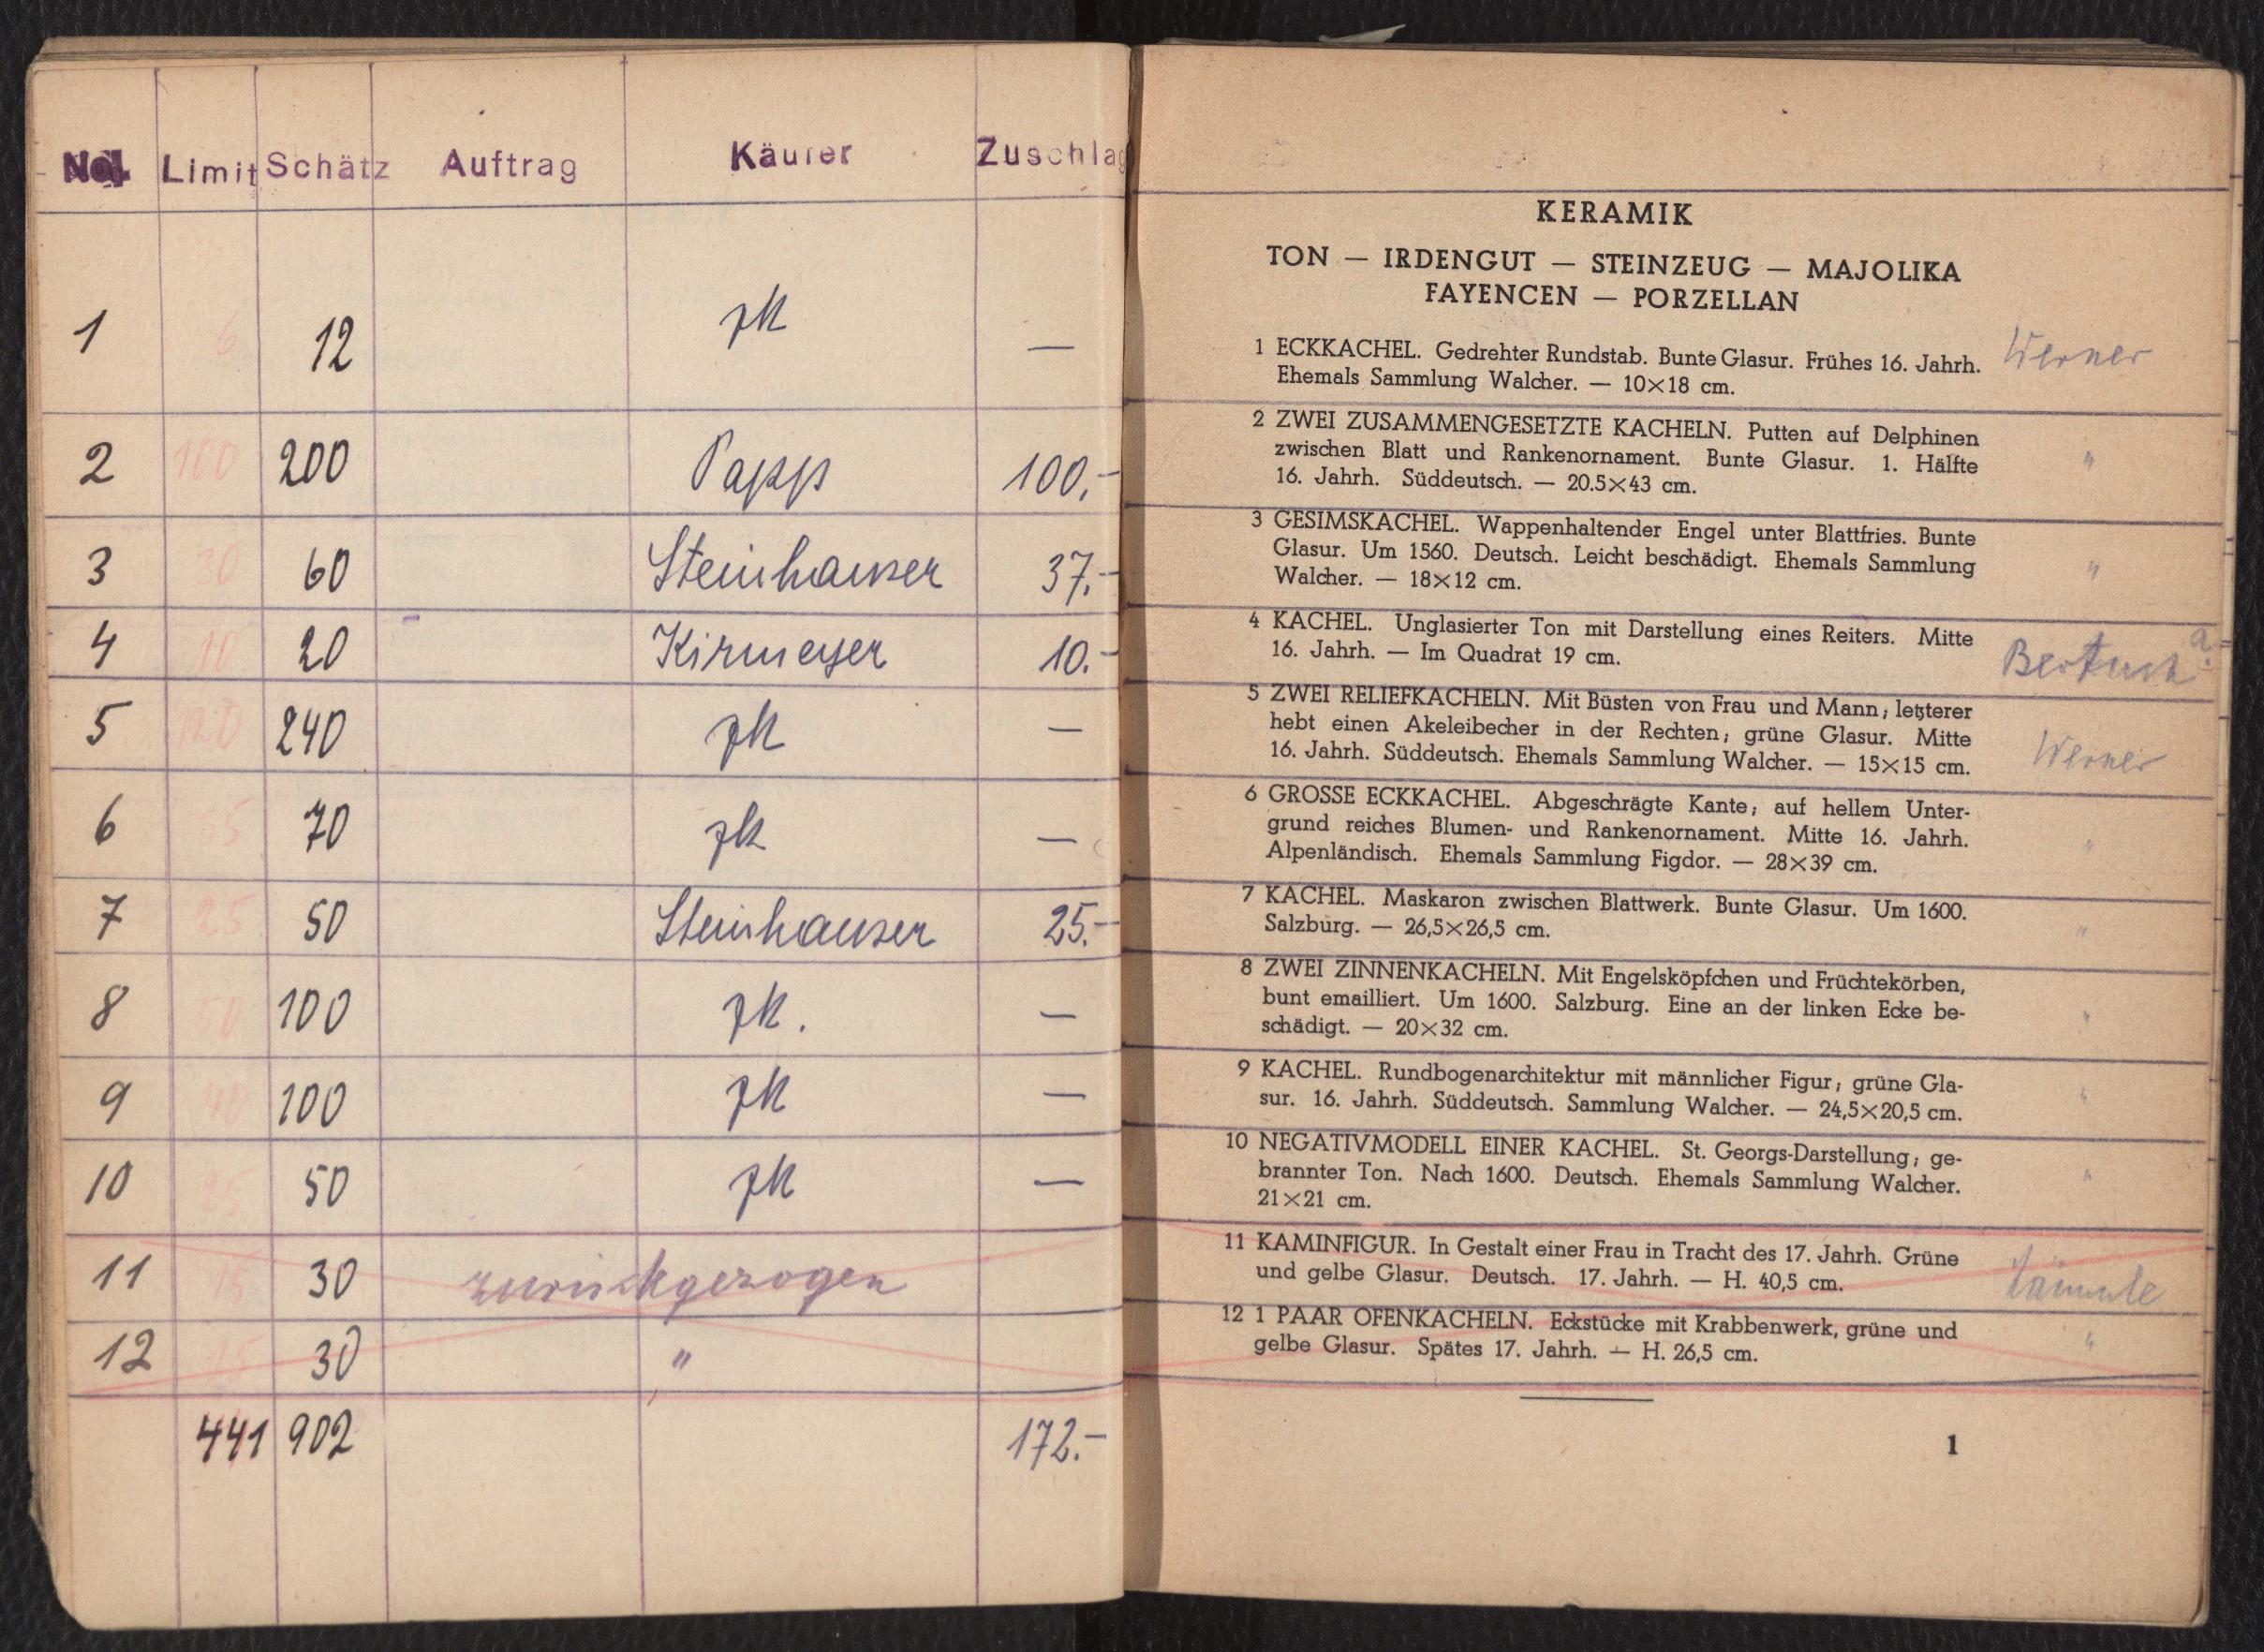 No. Limit Schätz Auftrag Käufer Zuschlag
1 6 12 zk —
2 100 200 Papp 100,-
3 30 60 Steinhauser 37.-
4 10 20 Kirmeyer 10.-
5 120 240 zk —
6 35 70 zk —
7 25 50 Steinhauser 25.-
8 50 100 zk. —
9 40 100 zk —
10 25 50 zk —
11 15 30 zurückgezogen
12 15 30 "
441 902 172.-
KERAMIK
TON — IRDENGUT — STEINZEUG — MAJOLIKA
FAYENCEN — PORZELLAN
1 ECKKACHEL. Gedrehter Rundstab. Bunte Glasur. Frühes 16. Jahrh. Werner
Ehemals Sammlung Walcher. — 10×18 cm.
2 ZWEI ZUSAMMENGESETZTE KACHELN. Putten auf Delphinen
zwischen Blatt und Rankenornament. Bunte Glasur. 1. Hälfte "
16. Jahrh. Süddeutsch. — 20.5×43 cm.
3 GESIMSKACHEL. Wappenhaltender Engel unter Blattfries. Bunte
Glasur. Um 1560. Deutsch. Leicht beschädigt. Ehemals Sammlung "
Walcher. — 18×12 cm.
4 KACHEL. Unglasierter Ton mit Darstellung eines Reiters. Mitte
16. Jahrh. — Im Quadrat 19 cm.
5 ZWEI RELIEFKACHELN. Mit Büsten von Frau und Mann; letzterer
hebt einen Akeleibecher in der Rechten; grüne Glasur. Mitte
16. Jahrh. Süddeutsch. Ehemals Sammlung Walcher. — 15×15 cm. Werner
6 GROSSE ECKKACHEL. Abgeschrägte Kante; auf hellem Unter-
grund reiches Blumen- und Rankenornament. Mitte 16. Jahrh. "
Alpenländisch. Ehemals Sammlung Figdor. — 28×39 cm.
7 KACHEL. Maskaron zwischen Blattwerk. Bunte Glasur. Um 1600.
Salzburg. — 26,5×26,5 cm. "
8 ZWEI ZINNENKACHELN. Mit Engelsköpfchen und Früchtekörben,
bunt emailliert. Um 1600. Salzburg. Eine an der linken Ecke be- "
schädigt. — 20×32 cm.
9 KACHEL. Rundbogenarchitektur mit männlicher Figur; grüne Gla-
sur. 16. Jahrh. Süddeutsch. Sammlung Walcher. — 24,5×20,5 cm. "
10 NEGATIVMODELL EINER KACHEL. St. Georgs-Darstellung; ge-
brannter Ton. Nach 1600. Deutsch. Ehemals Sammlung Walcher. "
21×21 cm.
11 KAMINFIGUR. In Gestalt einer Frau in Tracht des 17. Jahrh. Grüne
und gelbe Glasur. Deutsch. 17. Jahrh. — H. 40,5 cm. Lämmle
12 1 PAAR OFENKACHELN. Eckstücke mit Krabbenwerk, grüne und
gelbe Glasur. Spätes 17. Jahrh. — H. 26,5 cm. "
1